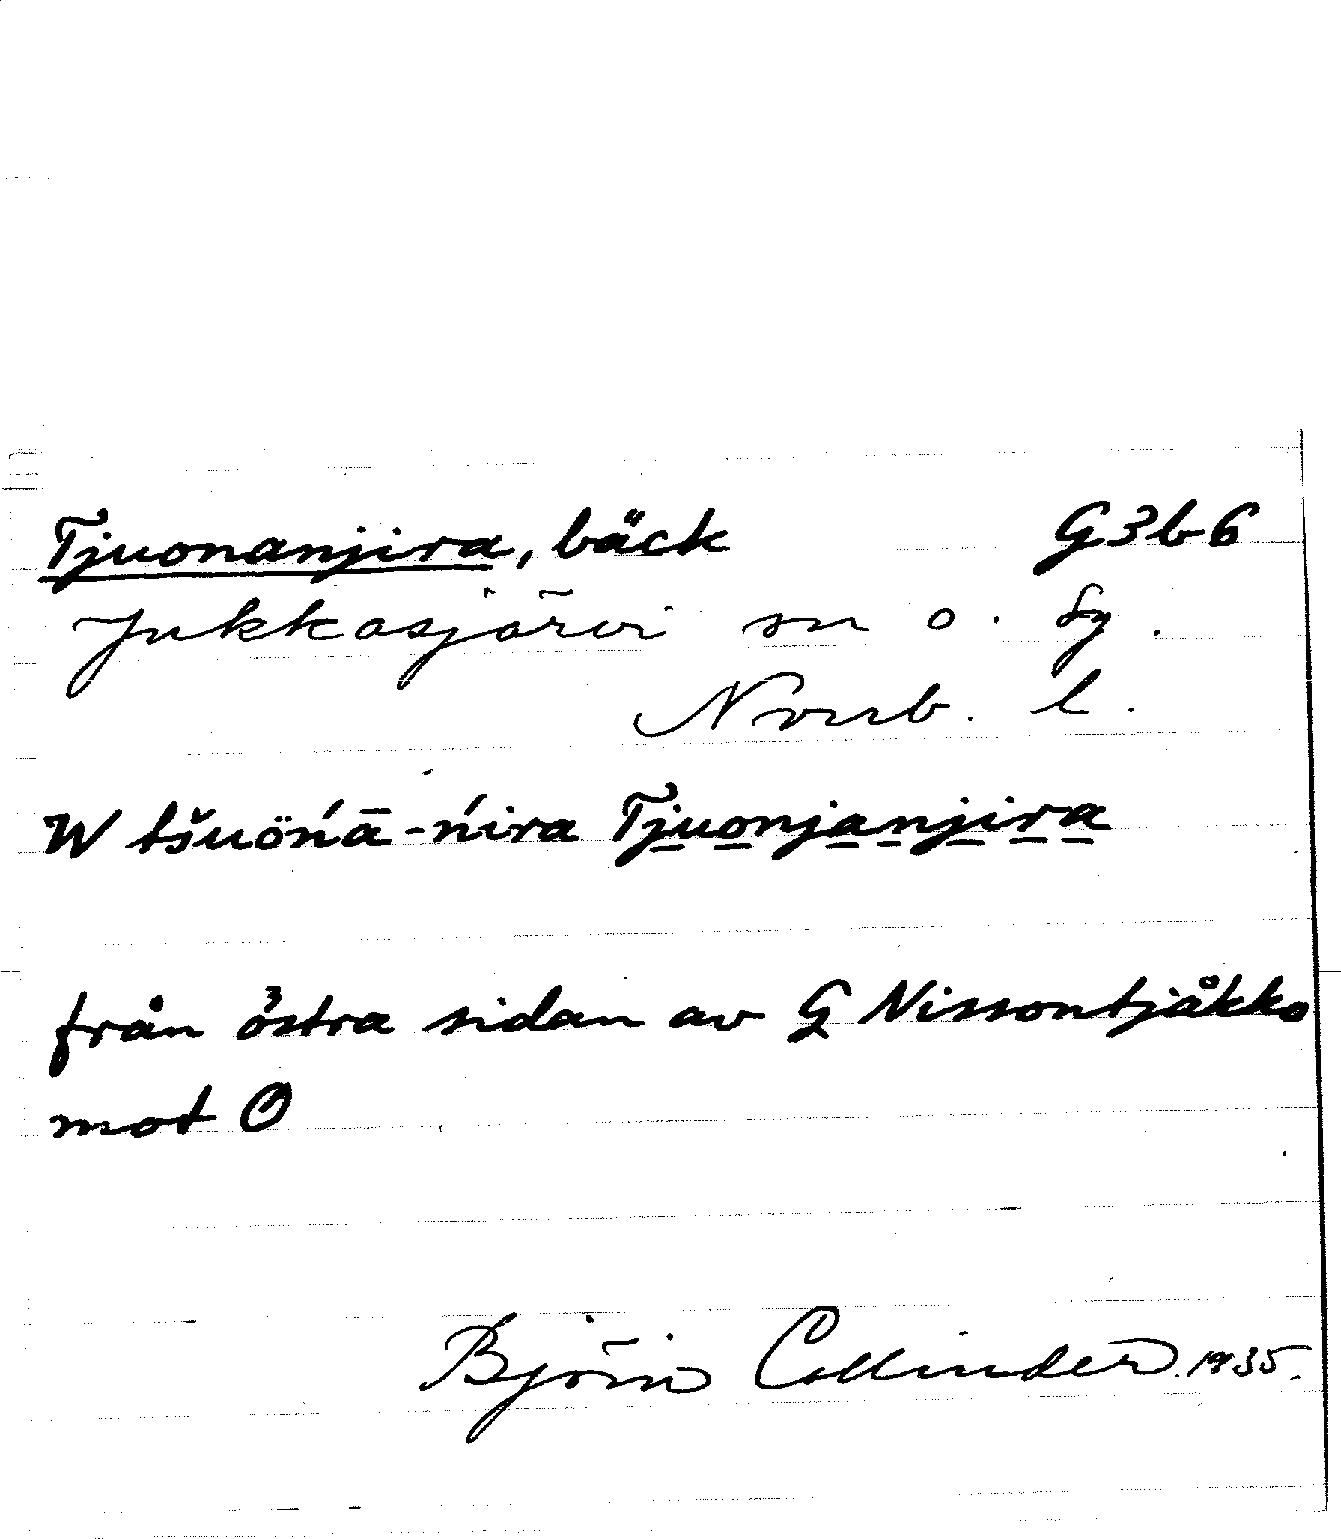 Tjuonanjira, bäck G3b6
Jukkasjärvi sn o. sg.
Norrb. l.
W tšuöńā-ńira Tjuonjanjira
från östra sidan av G Nissontjåkko
mot O
Björn Collinder. 1935.